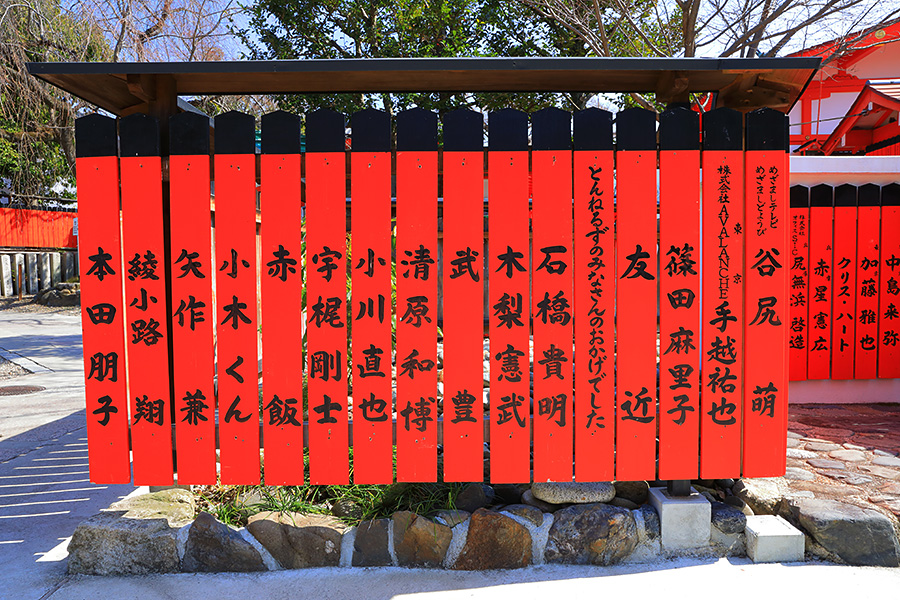 めざましテレビ
めざましどようび
谷尻 萌
東京
株式会社AVALANCHE
手越祐也
篠田麻里子
友近
とんねるずのみなさんのおかげでした
石橋貴明
木梨憲武
武豊
清原和博
小川直也
宇梶剛士
赤飯
小木くん
矢作兼
綾小路翔
本田朋子
中島来弥
加藤雅也
クリス・ハート
赤星憲広
株式会社
尻無浜啓造